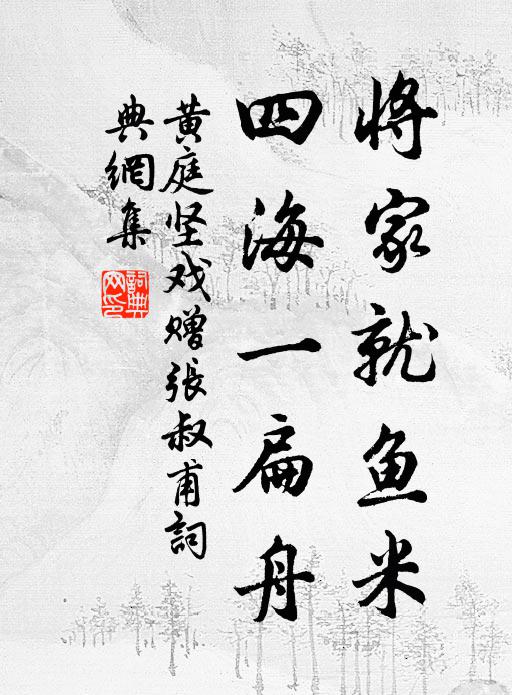 将家就鱼米
四海一扁舟
黄庭坚戏赠张叔甫詞
典網集
詞典网印